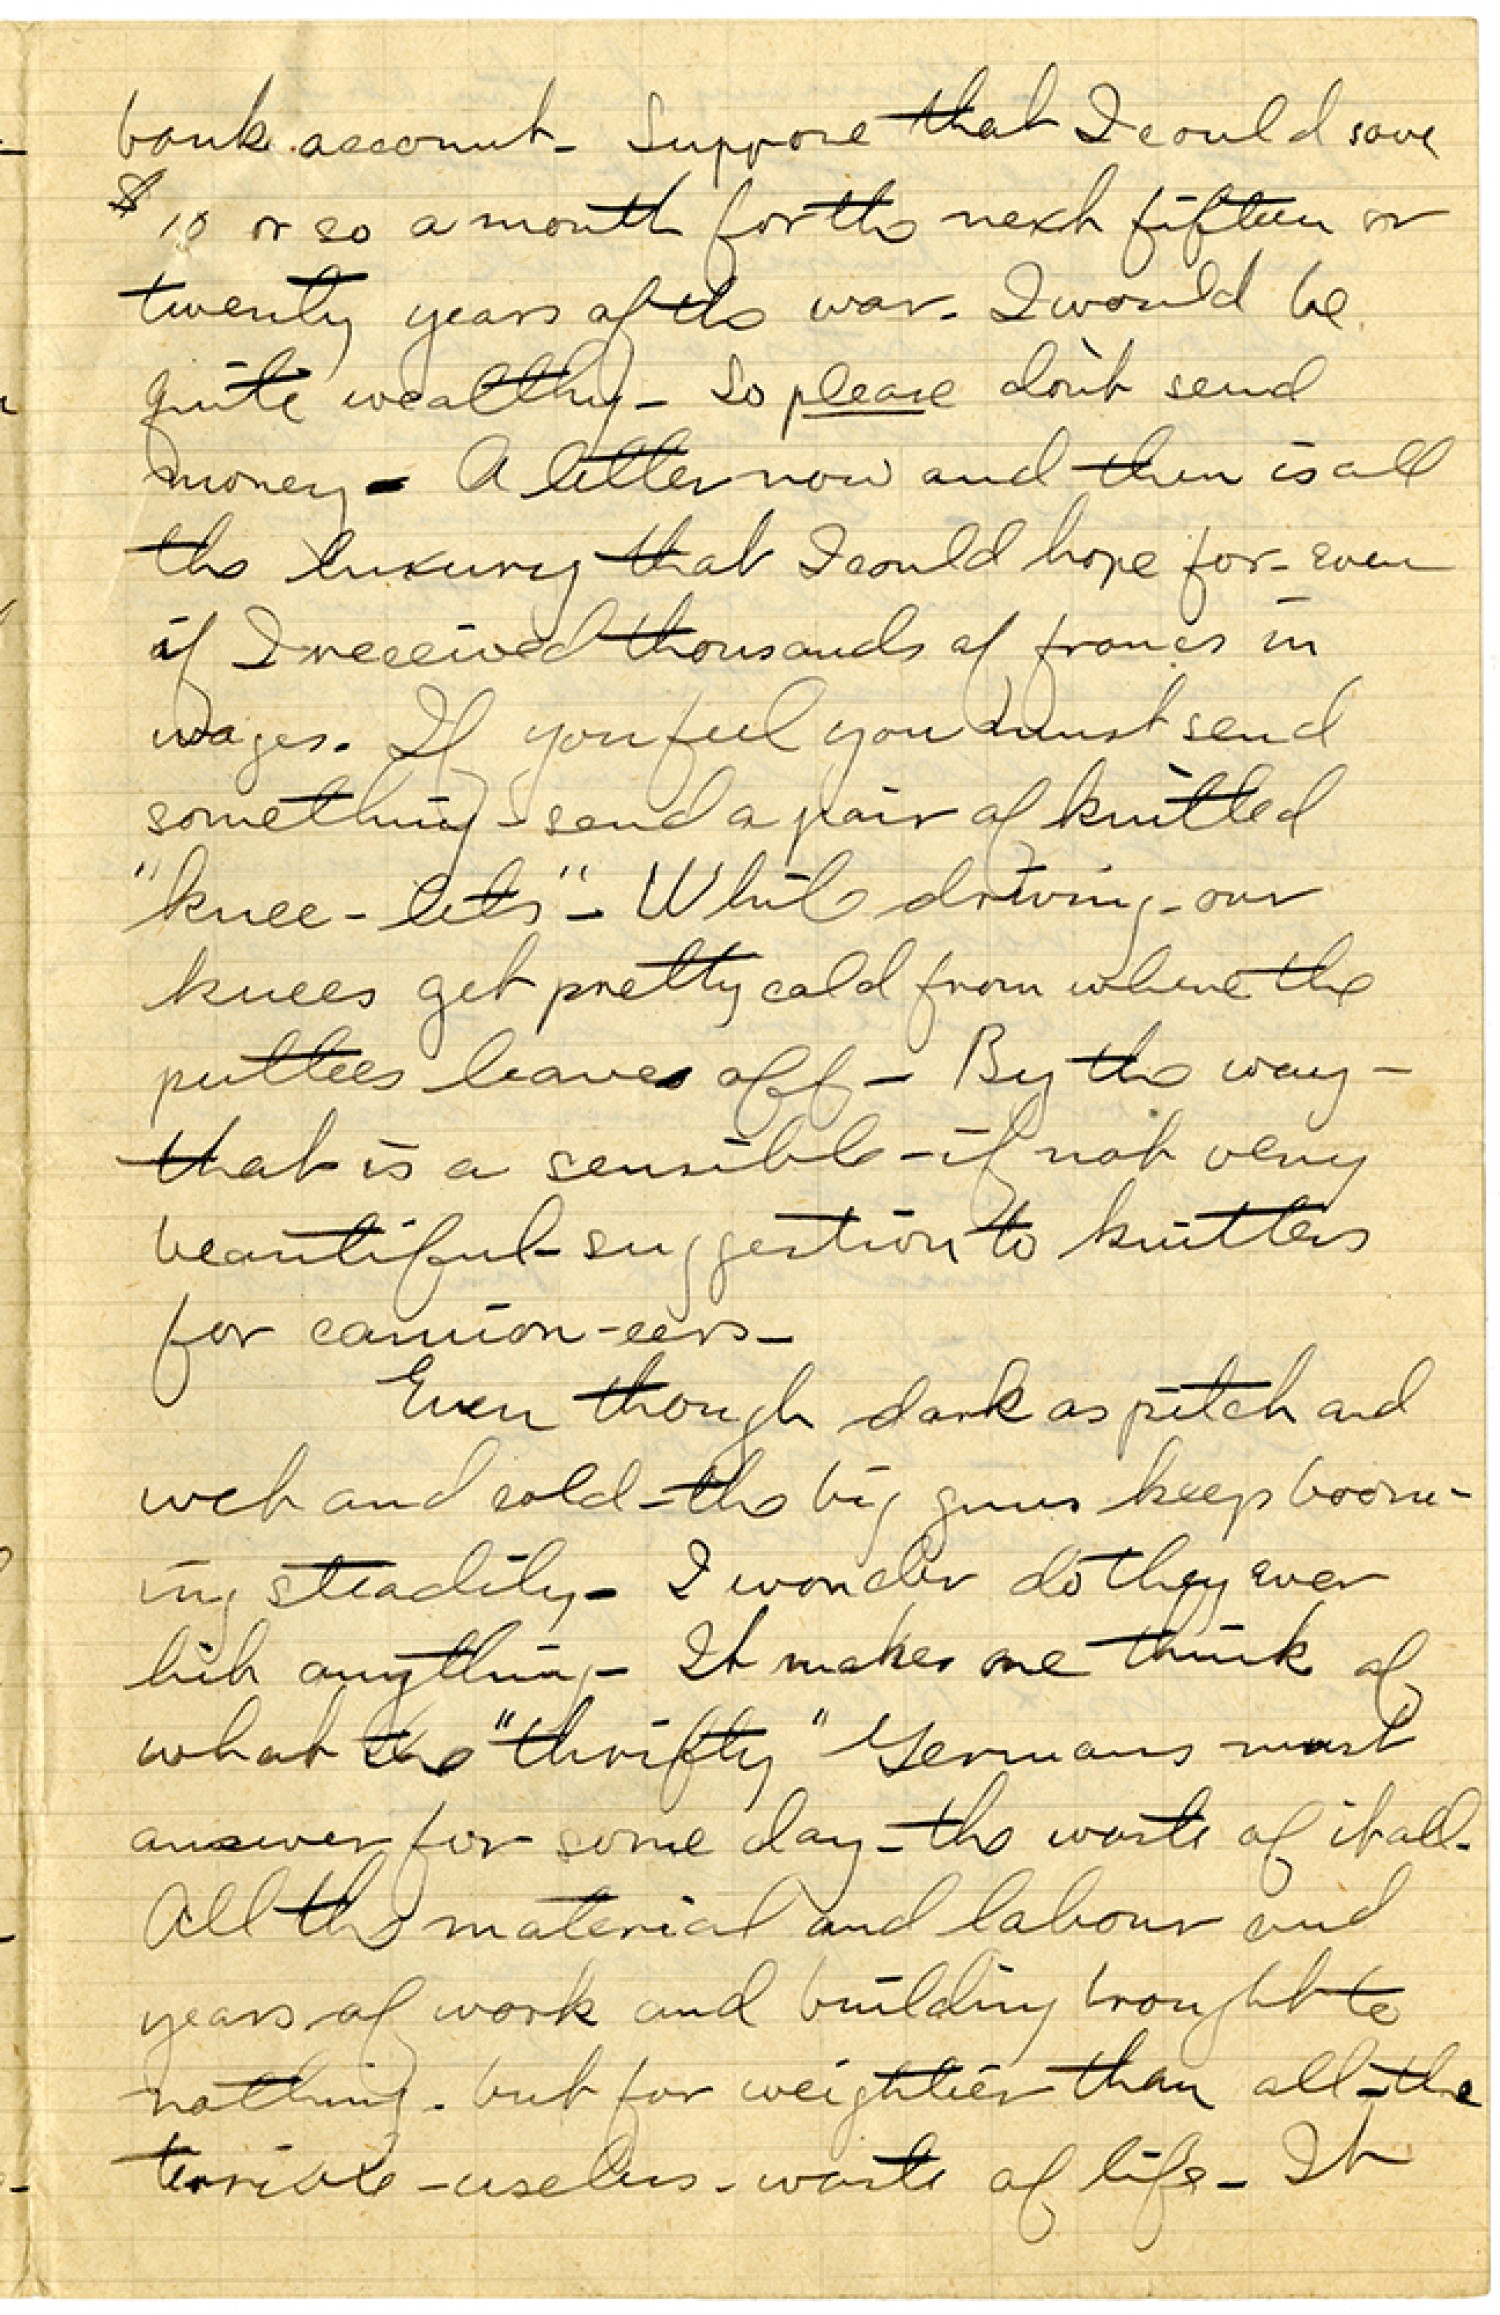 bank account - Suppose that I could save
$10 or so a month for the next fifteen or
twenty years of the war - I would be
quite wealthy - So please don't send
money - A letter now and then is all
the luxury that I could hope for - even
if I received thousands of francs in
wages. If you feel you must send
something - send a pair of knitted
"knee-lets" - While driving - our
knees get pretty cold from where the
puttees leaves off - By the way -
that is a sensible - if not very
beautiful - suggestion to knitters
for camion-eers -
Even though dark as pitch and
wet and cold - the big guns keep boom-
ing steadily - I wonder do they ever
hit anything - It makes me think of
what the "thrifty" Germans must
answer for some day - the waste of it all -
All the material and labour and
years of work and building brought to
nothing - but far weightier than all - the
terrible - useless - waste of life - It